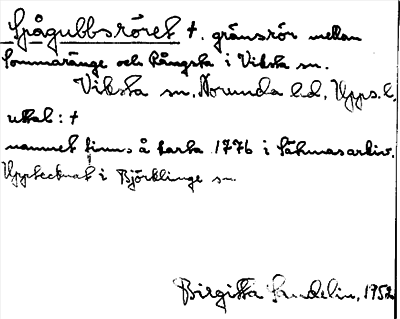 Spågubbsröret †. gränsrör mellan
Sommaränge och Rångsta i Viksta sn.
Viksta sn, Norunda hd, Upps. l.
uttal: †
namnet finns å karta 1776 i
Upptecknat i Björklinge sn.
Birgitta Sundelin, 1952